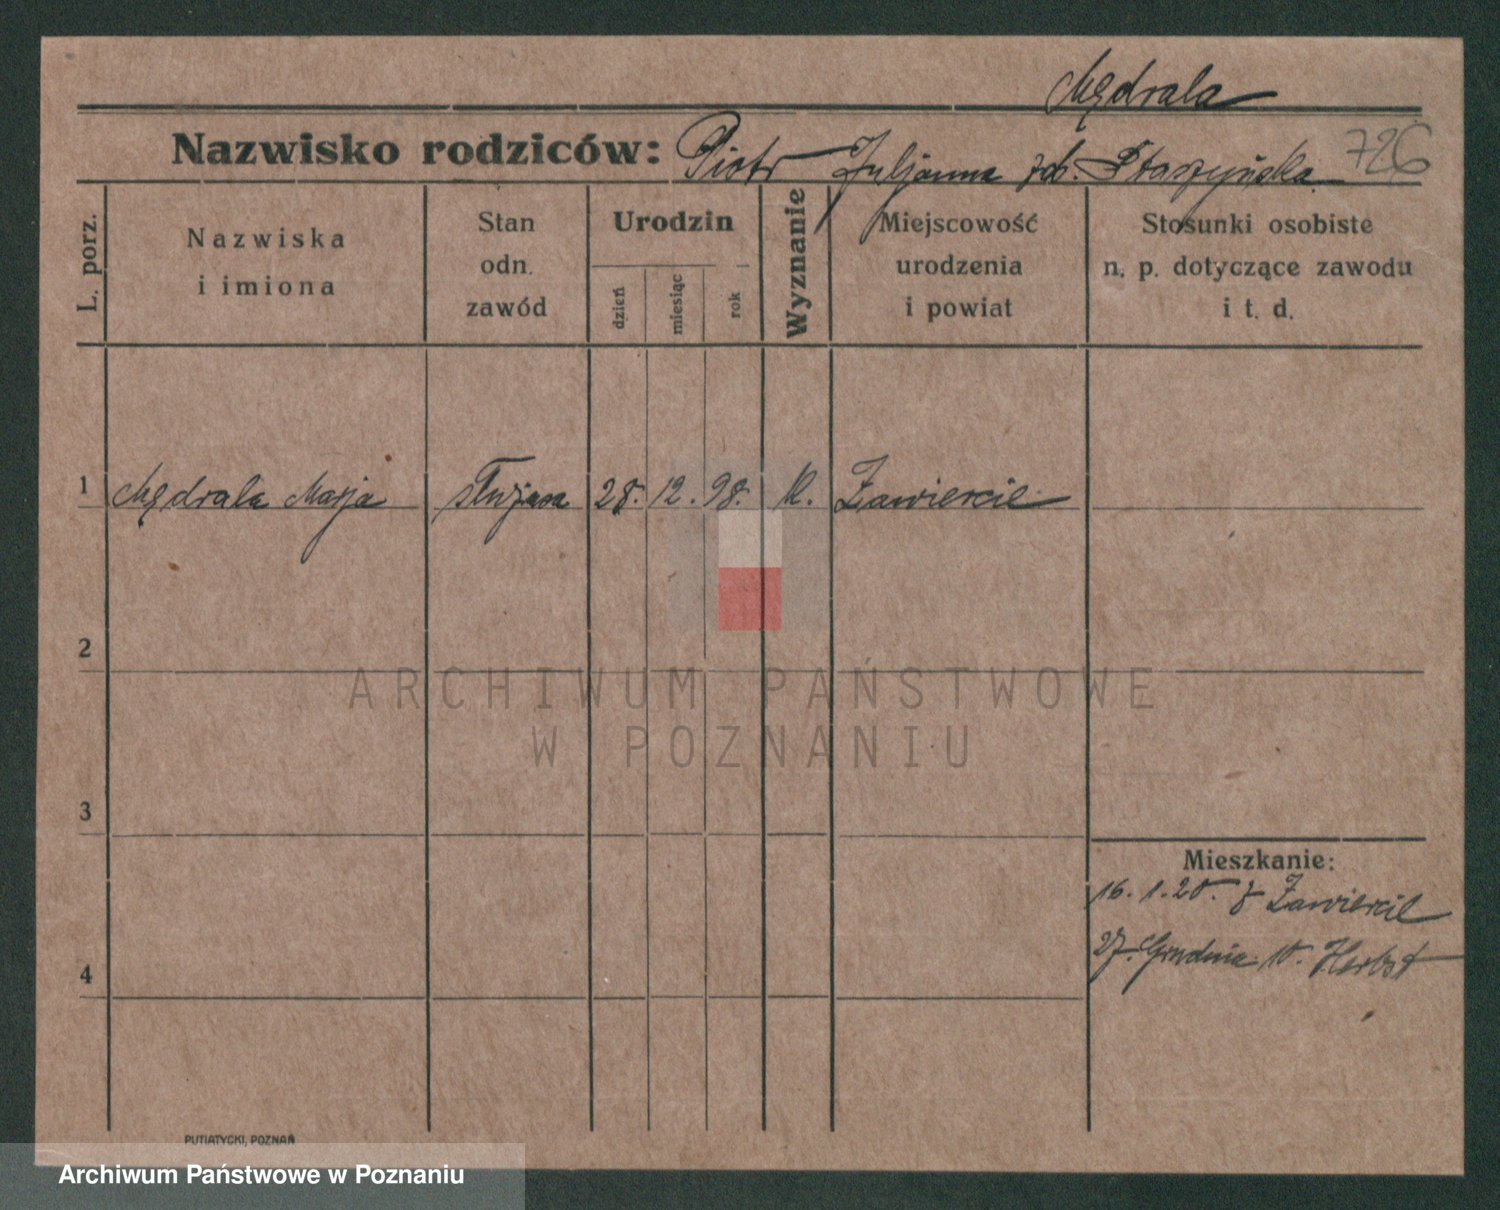 Mędrala
Nazwisko rodziców: Piotr Juljanna zd. Staszyńska 726
L. porz.
Nazwiska
i imiona
Stan
odn.
zawód
Urodzin
dzień
miesiąc
rok
Wyznanie
Miejscowość
urodzenia
i powiat
Stosunki osobiste
n. p. dotyczące zawodu
i t. d.
1 Mędrala Marja służąca 28. 12. 98. kt. Zawiercie
2
3
4
Mieszkanie:
16. 1. 20. z Zawiercie
27. Grudnia 10. Herbst
ARCHIWUM PAŃSTWOWE
W POZNANIU
PUTIATYCKI, POZNAŃ
Archiwum Państwowe w Poznaniu